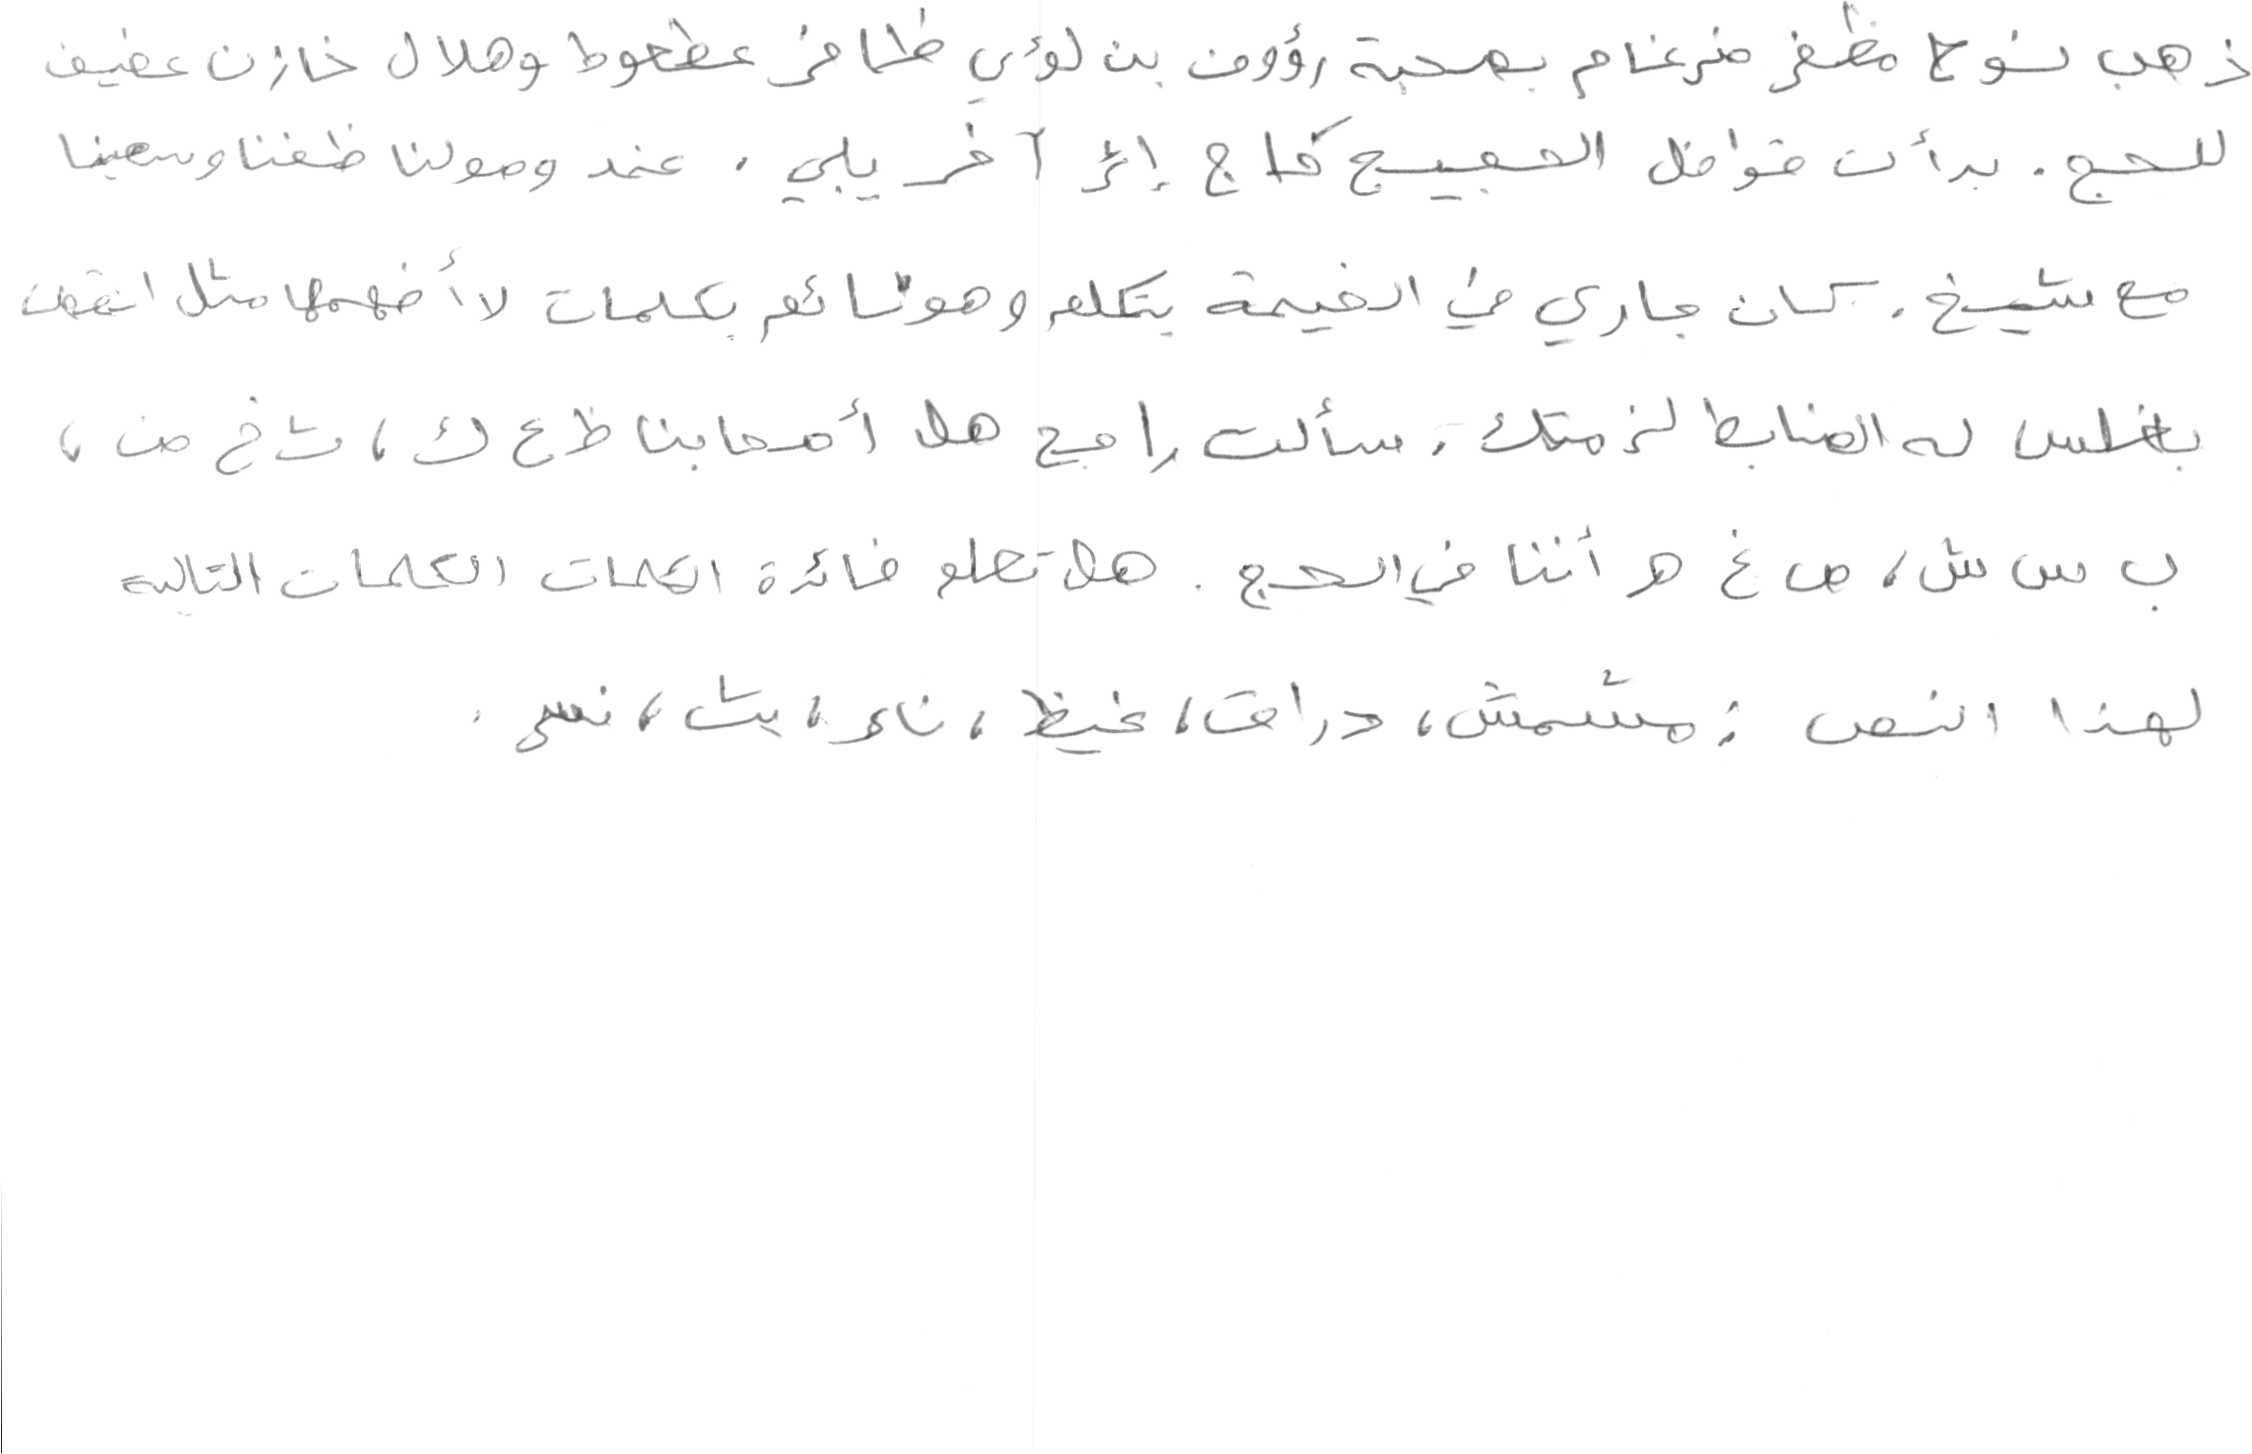 ذهب نوح مظفر ضرغام بصحبة رؤوف بن لؤي ظافر عطعوط وهلال خازن عفيف
للحج . بدأت قوافل الحجيج كل حاج إثر آخر يلبي . عند وصولنا طفنا وسعينا
مع شيخ . كان جاري في الخيمة يتكلم وهو نائم بكلمات لا أفهمها مثل انقض
بغلس له الضابط لزمتك . سألت راجح هل أصحابنا ظ ع ك ، ث خ ض ،
ب س ش ، ص غ هـ أننا في الحج . هل تعلم فائدة الكلمات الكلمات التالية
لهذا النص : مشمش ، دراق ، غيظ ، ناء ، بث ، نسى .